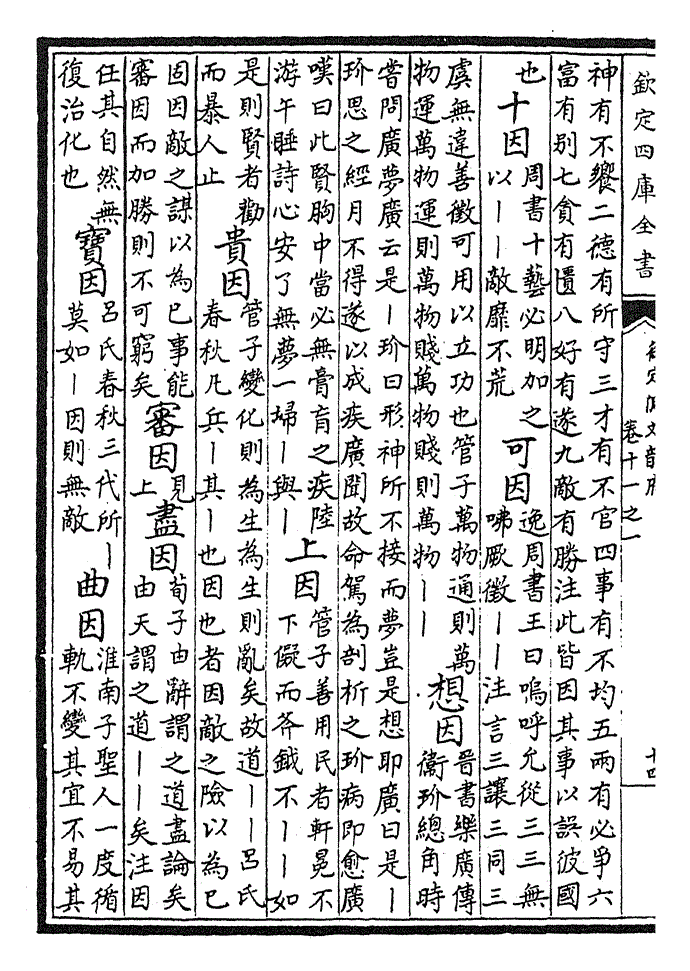 欽定四庫全書
御定佩文韻府
卷十一之一
十四
神有不饗二德有所守三才有不官四事有不均五兩有必爭六
富有别七貪有匱八好有遂九敵有勝注此皆因其事以誤彼國
也
十因
周書十藝必明加之
以丨丨敵靡不荒
可因
逸周書王曰嗚呼允從三三無
咈厥徵丨丨注言三讓三同三
虞無違善徵可用以立功也管子萬物通則萬
物運萬物運則萬物賤萬物賤則萬物丨丨
想因
晉書樂廣傳
衛玠總角時
嘗問廣夢廣云是丨玠曰形神所不接而夢豈是想耶廣曰是丨
玠思之經月不得遂以成疾廣聞故命駕為剖析之玠病即愈廣
嘆曰此賢胸中當必無膏肓之疾陸
游午睡詩心安了無夢一埽丨與丨
上因
管子善用民者軒冕不
下儗而斧鉞不丨丨如
是則賢者勸
而暴人止
貴因
管子變化則為生為生則亂矣故道丨丨吕氏
春秋凡兵丨其丨也因也者因敵之險以為已
固因敵之謀以為已事能
審因而加勝則不可窮矣
審因
見
上
盡因
荀子由辭謂之道盡論矣
由天謂之道丨丨矣注因
任其自然無
復治化也
寶因
吕氏春秋三代所丨
莫如丨因則無敵
曲因
淮南子聖人一度循
軌不變其宜不易其